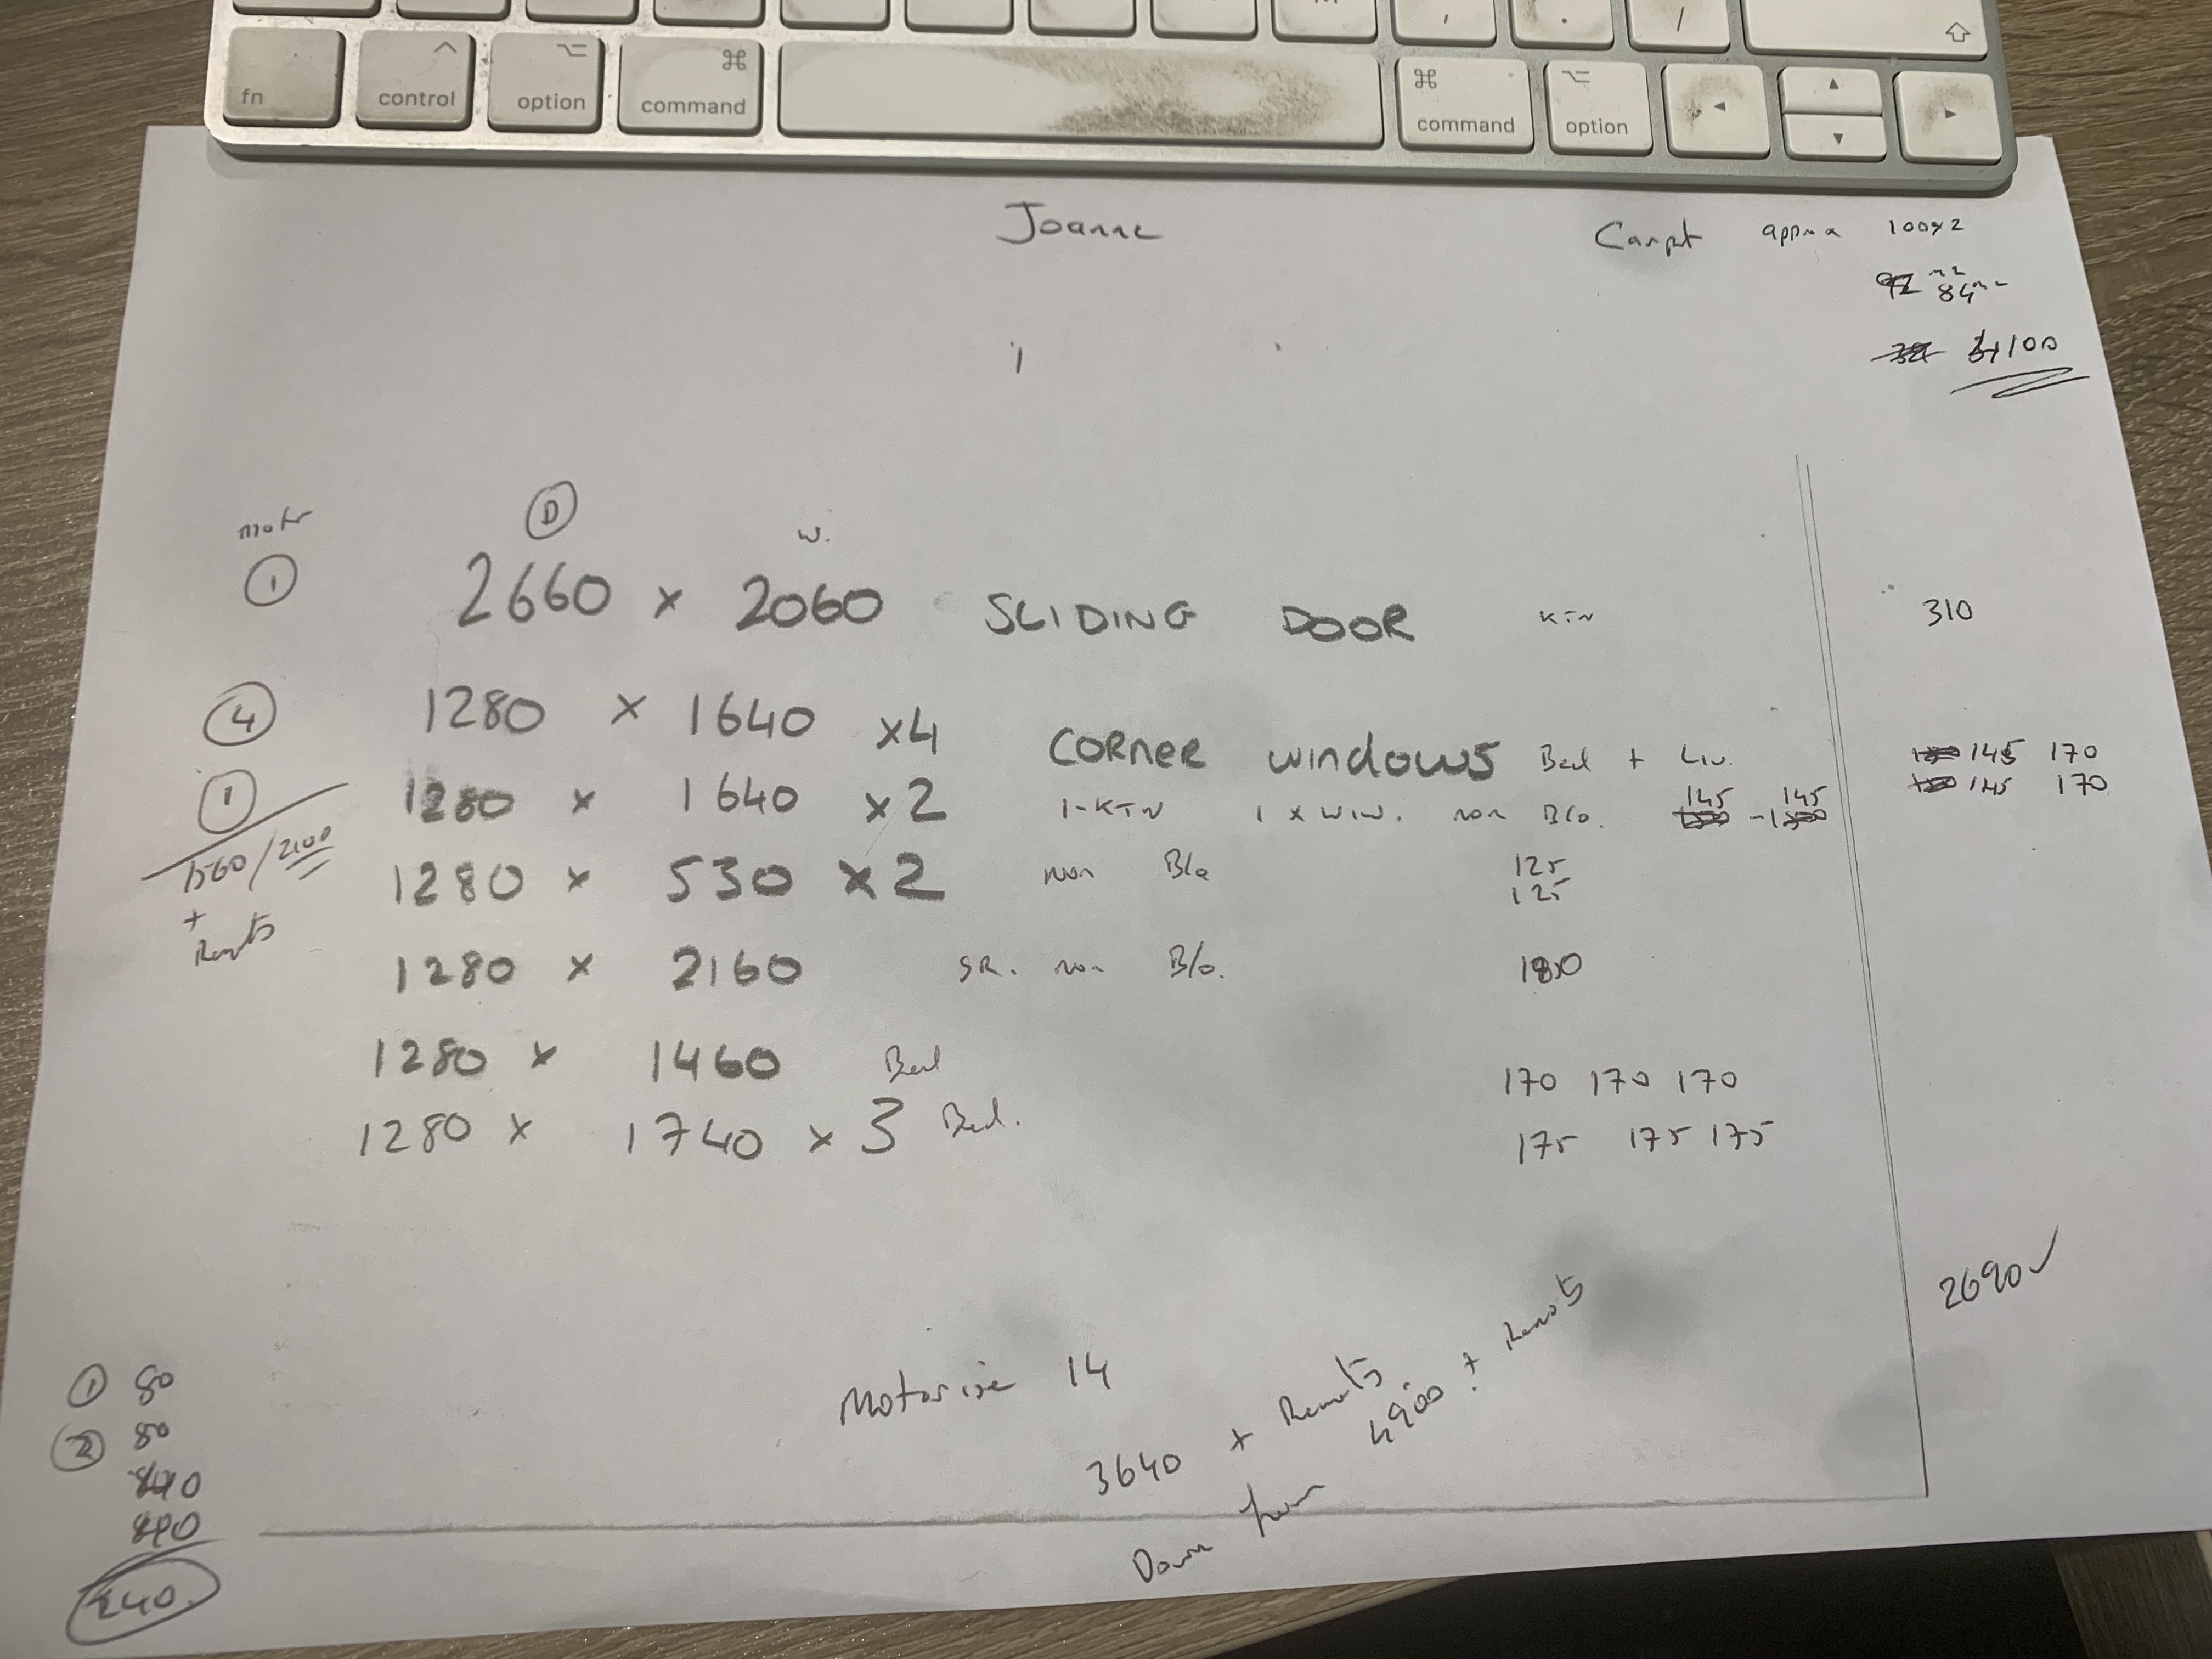 fn control option command command option
Joanne
Carpt approx 100m2
84m2
100
motr D W.
1 2660 x 2060 SLIDING DOOR KTN 310
4 1280 x 1640 x4 CORNER WINDOWS Bed + Liv. 145 170
145 170
1 1280 x 1640 x2 1-KTN 1 x W.I.W. non B/o. 145 145
1560/2100
+
Remots
1280 x 530 x2 non B/o 125
125
1280 x 2160 SR. non B/o. 180
1280 x 1460 Bed 170 170 170
1280 x 1740 x 3 Bed. 175 175 175
2690
Motorise 14
3640 + Remots
Down from 4900 + Remots
1 80
2 80
240.